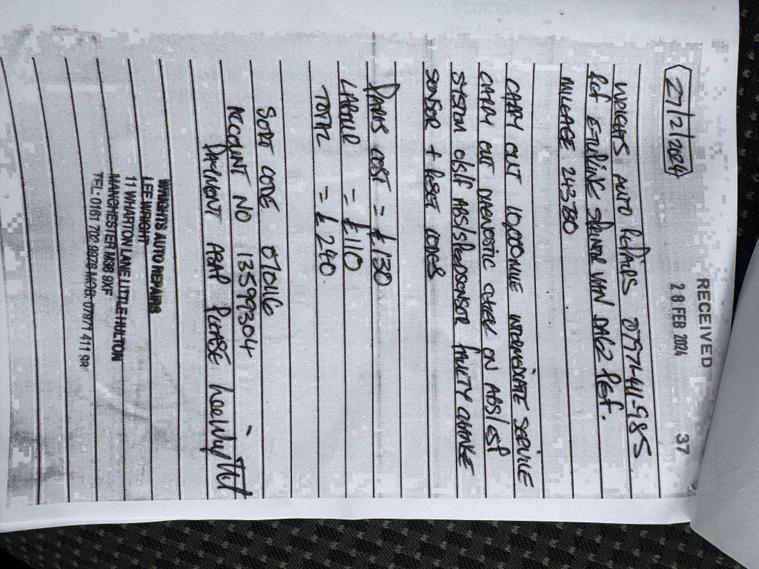 RECEIVED
28 FEB 2024
37
27/2/2024
WRIGHTS AUTO REPAIRS 07971-411-985
Ref SPRINTER VAN DA62
MILEAGE 243780
CARRY OUT 10,000 MILE INTERMEDIATE SERVICE
CARRY OUT DIAGNOSTIC CHECK ON ABS/ESP
SYSTEM O/S/F ABS/SPEED SENSOR FAULTY CHANGE
SENSOR + RESET CODES
PARTS COST = £130
LABOUR = £110
TOTAL = £240
SORT CODE 070116
ACCOUNT NO 13599304
PAYMENT ASAP PLEASE
WRIGHTS AUTO REPAIRS
LEE WRIGHT
11 WHARTON LANE LITTLE HULTON
MANCHESTER M38 9XF
TEL: 0161 702 MOB: 07971 411